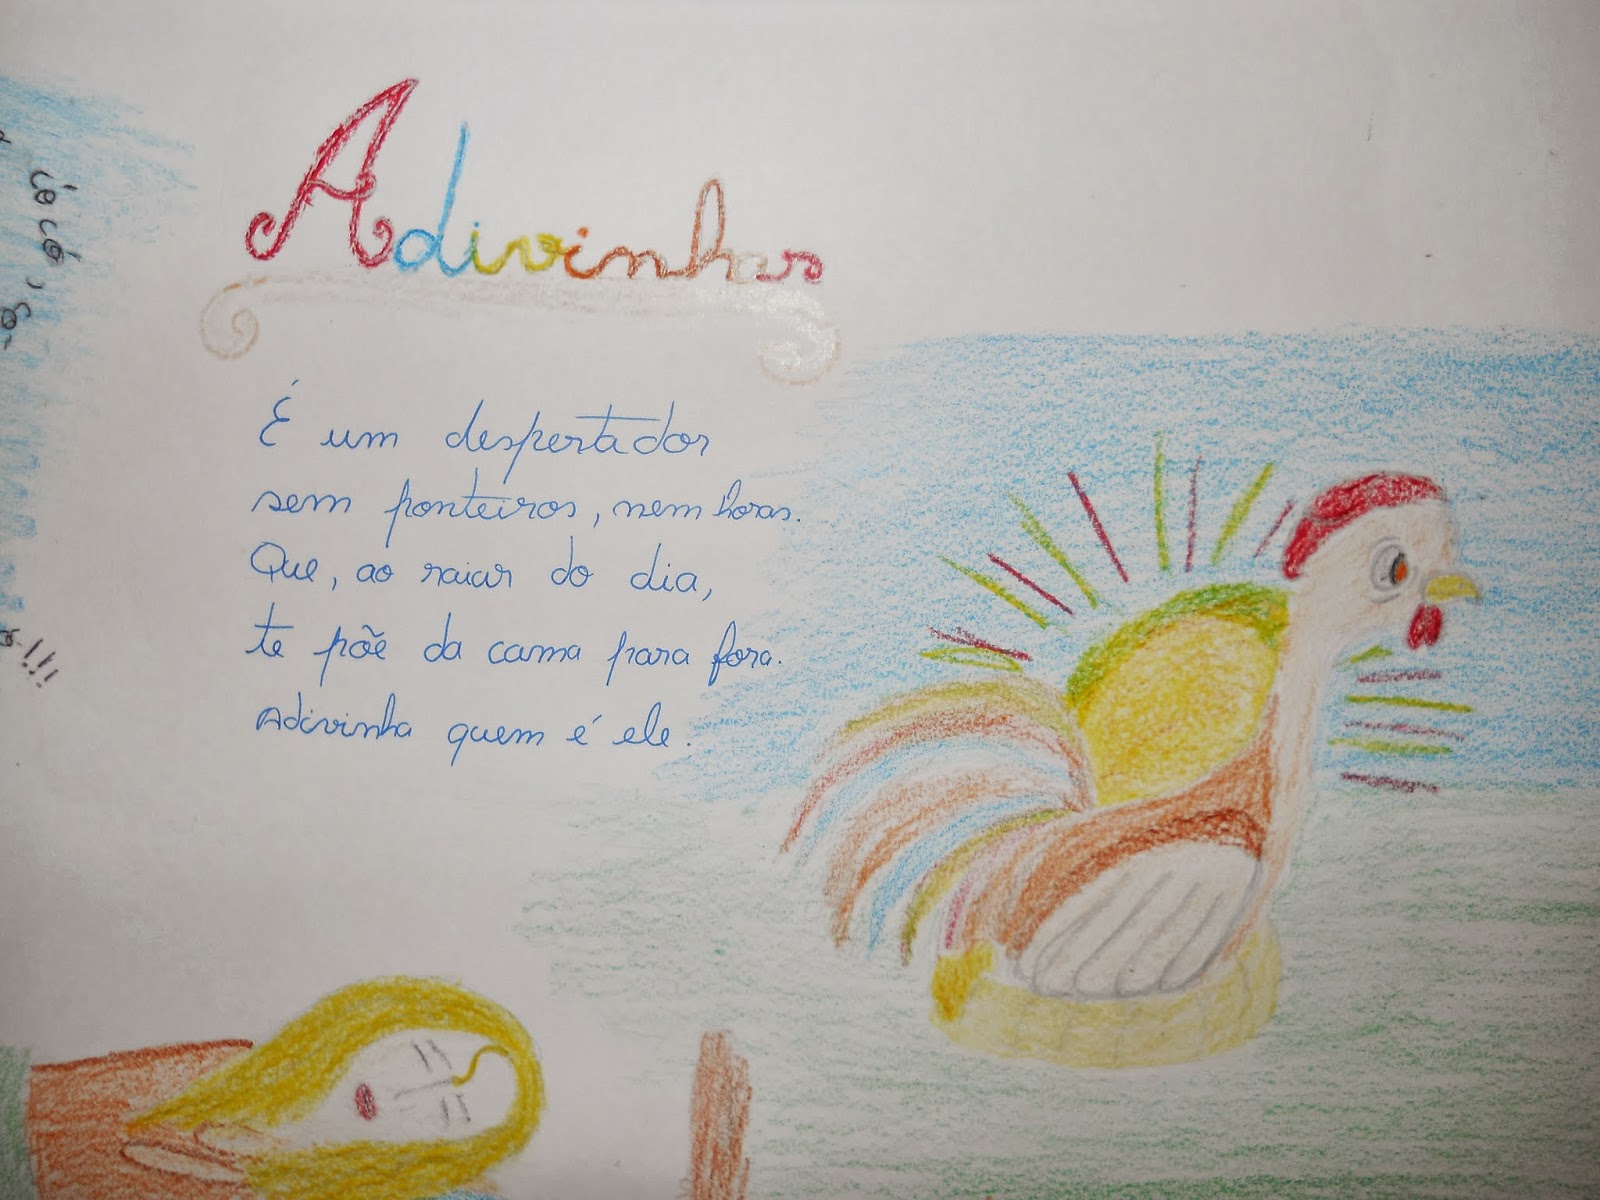 Adivinhas
É um despertador
sem ponteiros, nem horas.
Que, ao raiar do dia,
te põe da cama para fora.
Adivinha quem é ele.
có có, có-
!!!